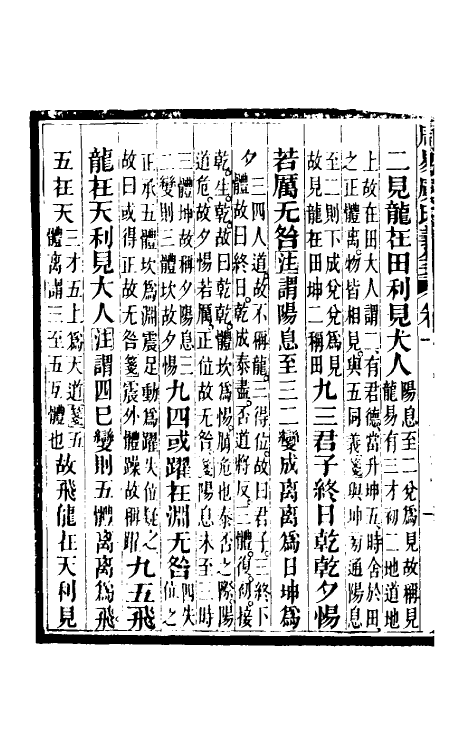 二見龍在田利見大人陽息至二兌爲見故稱見
龍易有三才初二地道地
上故在田大人謂二有君德當升坤五時舍於田
之正體離物皆相見與五同義箋與坤初通陽息
至二則下成兌兌爲見
故見龍在田坤二稱田九三君子終日乾乾夕惕
若厲无咎注謂陽息至三二變成离离爲日坤爲
夕三四人道故不稱龍三得位故曰君子三終下
體故曰終日乾成泰盡否道將反三體復初接
乾生乾故曰乾乾體坎爲惕危也泰否之際陽
道危故夕惕若厲正位故无咎箋陽息未至三時
三體坤故稱夕陽息三
二變則三體坎故夕惕九四或躍在淵无咎四失
位之
正承五體坎爲淵震足動爲躍失位疑之
故曰或得正故无咎箋震外體躁故稱躍九五飛
龍在天利見大人注謂四已變則五體离离爲飛
五在天三才五上爲天道箋五
體離謂三至五互體也故飛龍在天利見